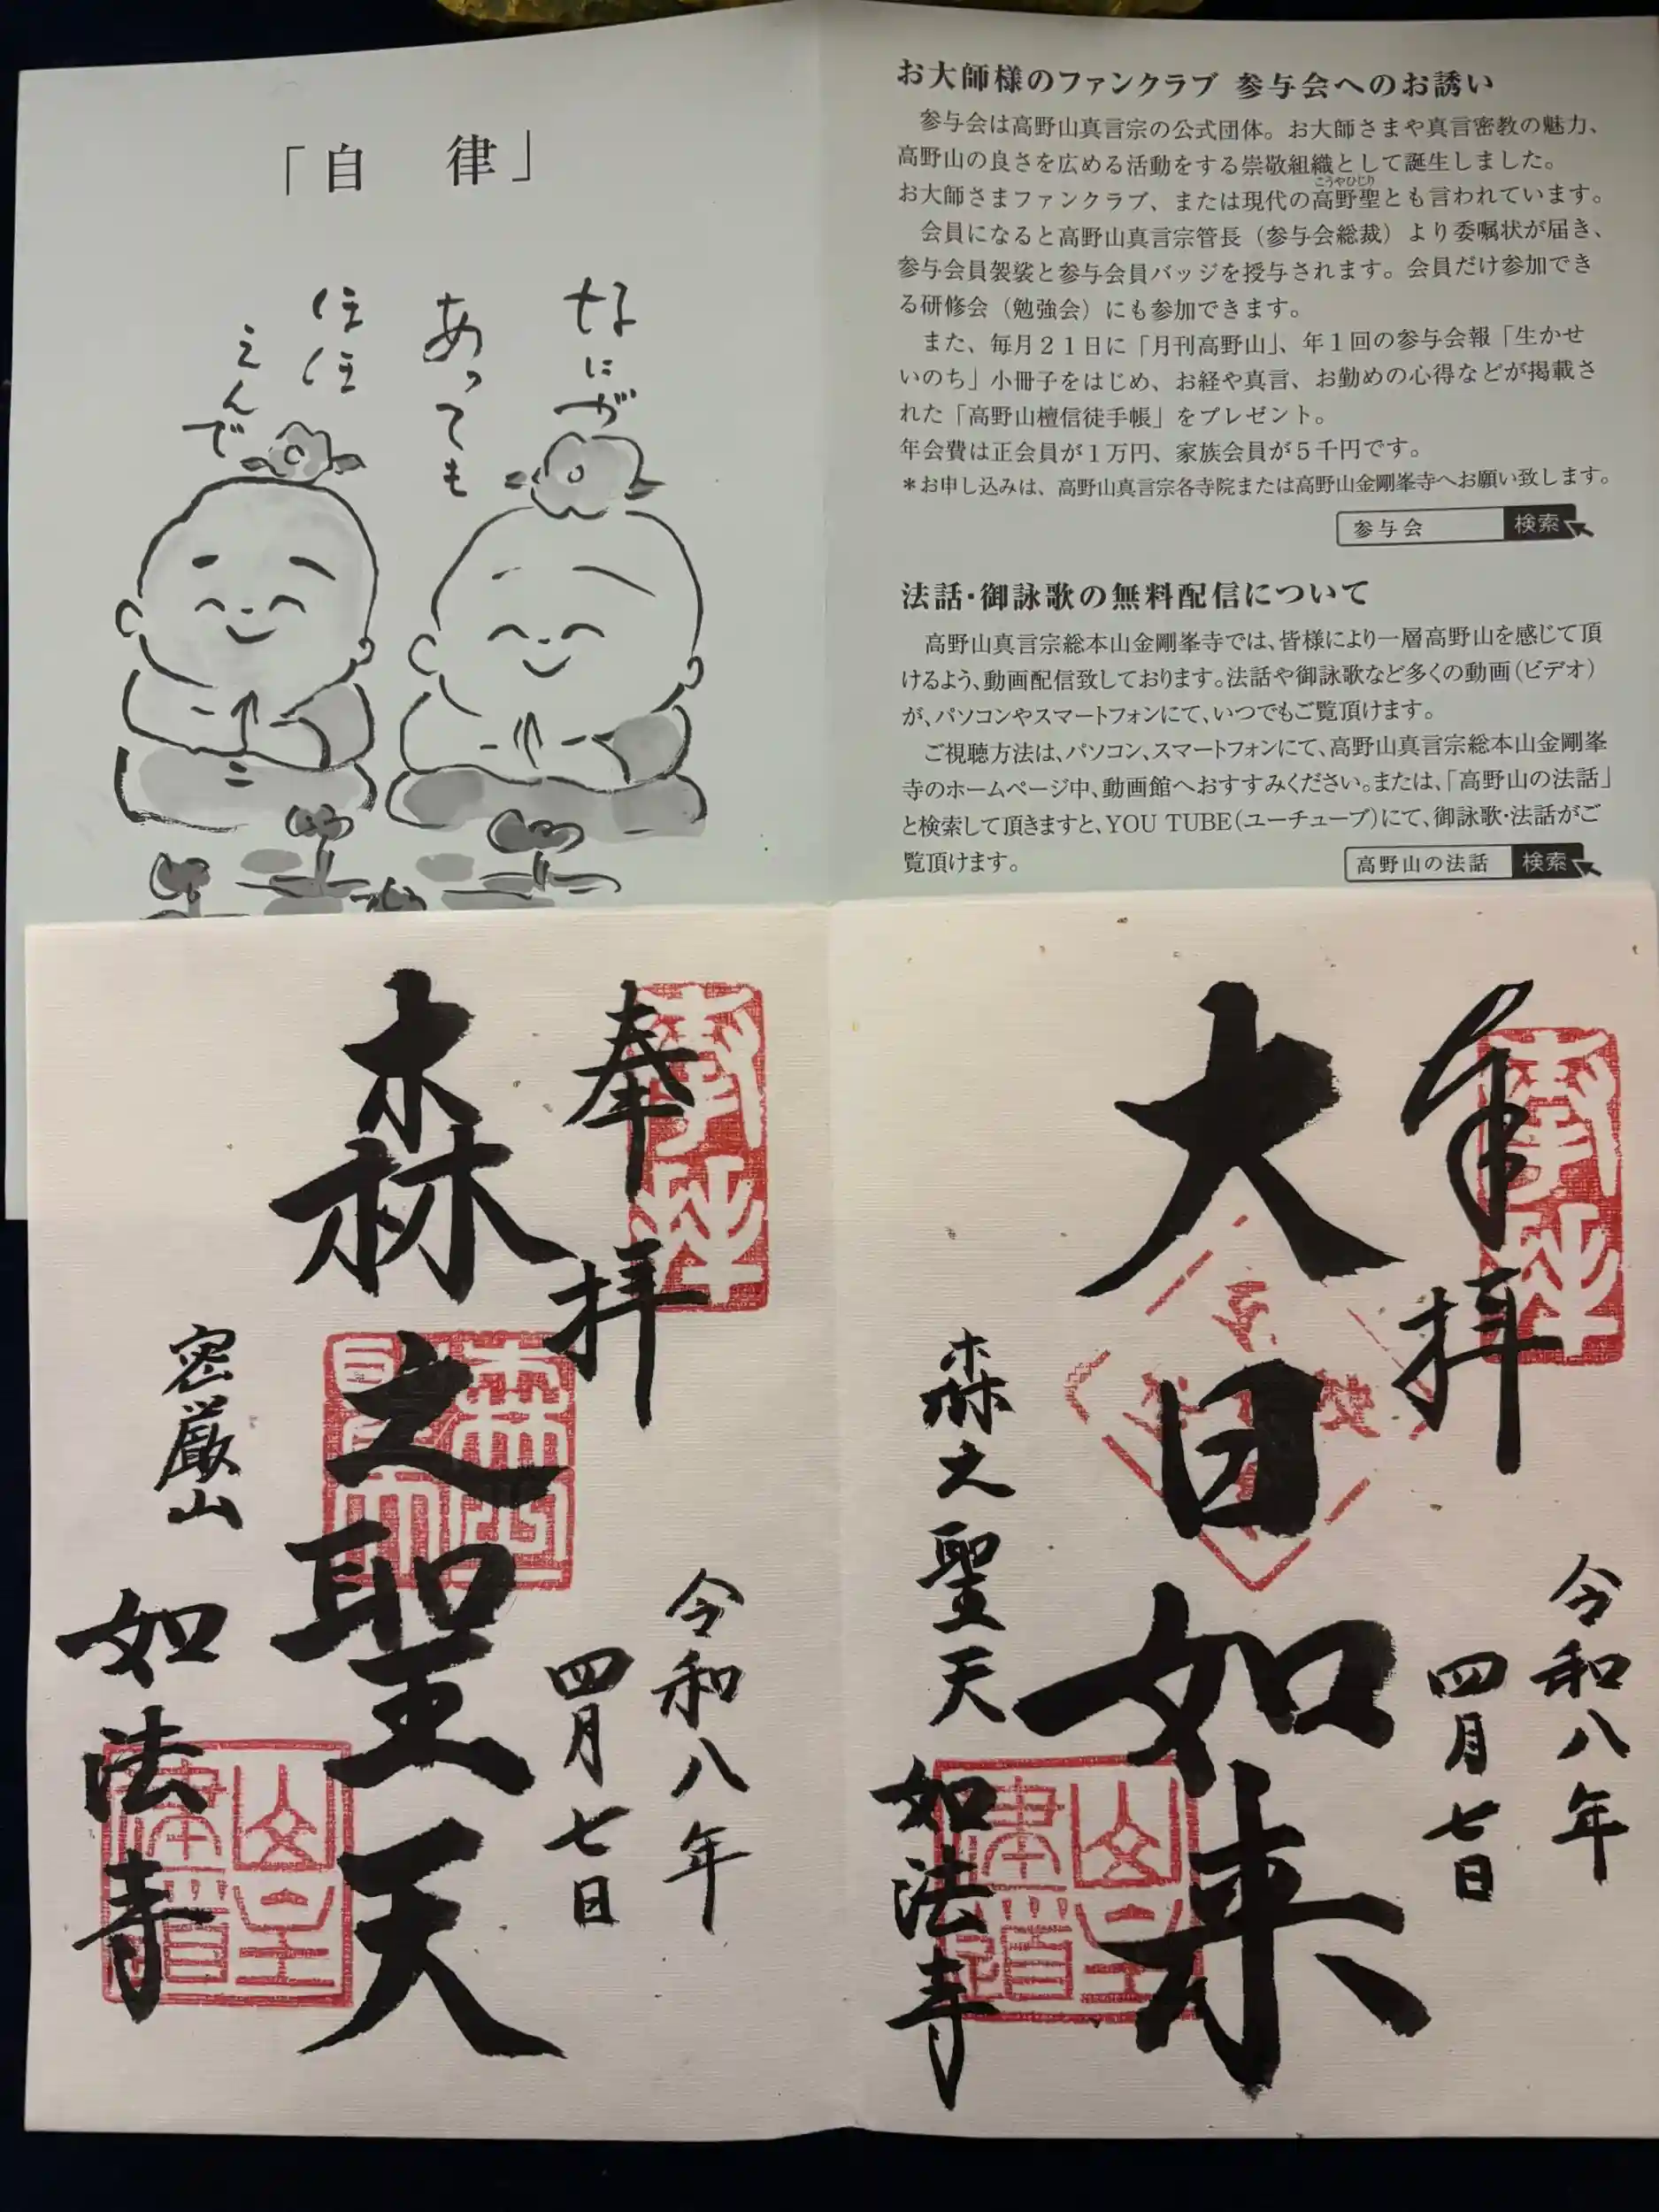 「自 律」
なにが
あっても
ほほ
えんで
お大師様のファンクラブ 参与会へのお誘い
参与会は高野山真言宗の公式団体。お大師さまや真言密教の魅力、
高野山の良さを広める活動をする崇敬組織として誕生しました。
こうやひじり
お大師さまファンクラブ、または現代の高野聖とも言われています。
会員になると高野山真言宗管長（参与会総裁）より委嘱状が届き、
参与会員袈裟と参与会員バッジを授与されます。会員だけ参加でき
る研修会（勉強会）にも参加できます。
また、毎月２１日に「月刊高野山」、年１回の参与会報「生かせ
いのち」小冊子をはじめ、お経や真言、お勤めの心得などが掲載さ
れた「高野山檀信徒手帳」をプレゼント。
年会費は正会員が１万円、家族会員が５千円です。
＊お申し込みは、高野山真言宗各寺院または高野山金剛峯寺へお願い致します。
参与会 検索
法話・御詠歌の無料配信について
高野山真言宗総本山金剛峯寺では、皆様により一層高野山を感じて頂
けるよう、動画配信致しております。法話や御詠歌など多くの動画（ビデオ）
が、パソコンやスマートフォンにて、いつでもご覧頂けます。
ご視聴方法は、パソコン、スマートフォンにて、高野山真言宗総本山金剛峯
寺のホームページ中、動画館へおすすみください。または、「高野山の法話」
と検索して頂きますと、YOU TUBE（ユーチューブ）にて、御詠歌・法話がご
覧頂けます。
高野山の法話 検索
奉拝
令和八年
四月七日
大日如来
森之聖天
如法寺
奉拝
令和八年
四月七日
森之聖天
密厳山
如法寺